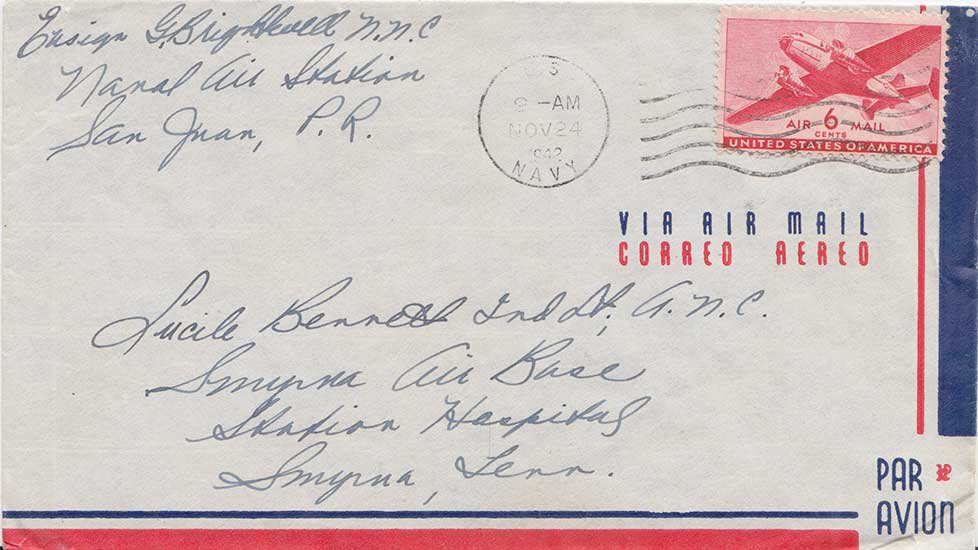 Ensign G. Brightwell N.N.C
Naval Air Station
San Juan, P.R.
U.S
9-AM
NOV 24
1942
NAVY
AIR 6 MAIL
CENTS
UNITED STATES OF AMERICA
VIA AIR MAIL
CORREO AEREO
Lucile Bennett 2nd Lt, A.N.C.
Smyrna Air Base
Station Hospital
Smyrna, Tenn.
PAR
AVION